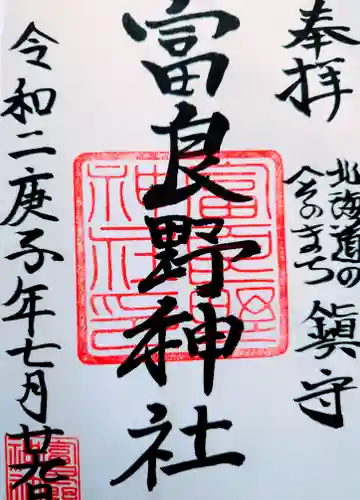 奉拝
北海道の
へそのまち
鎮守
富良野神社
令和二庚子年七月廿五日